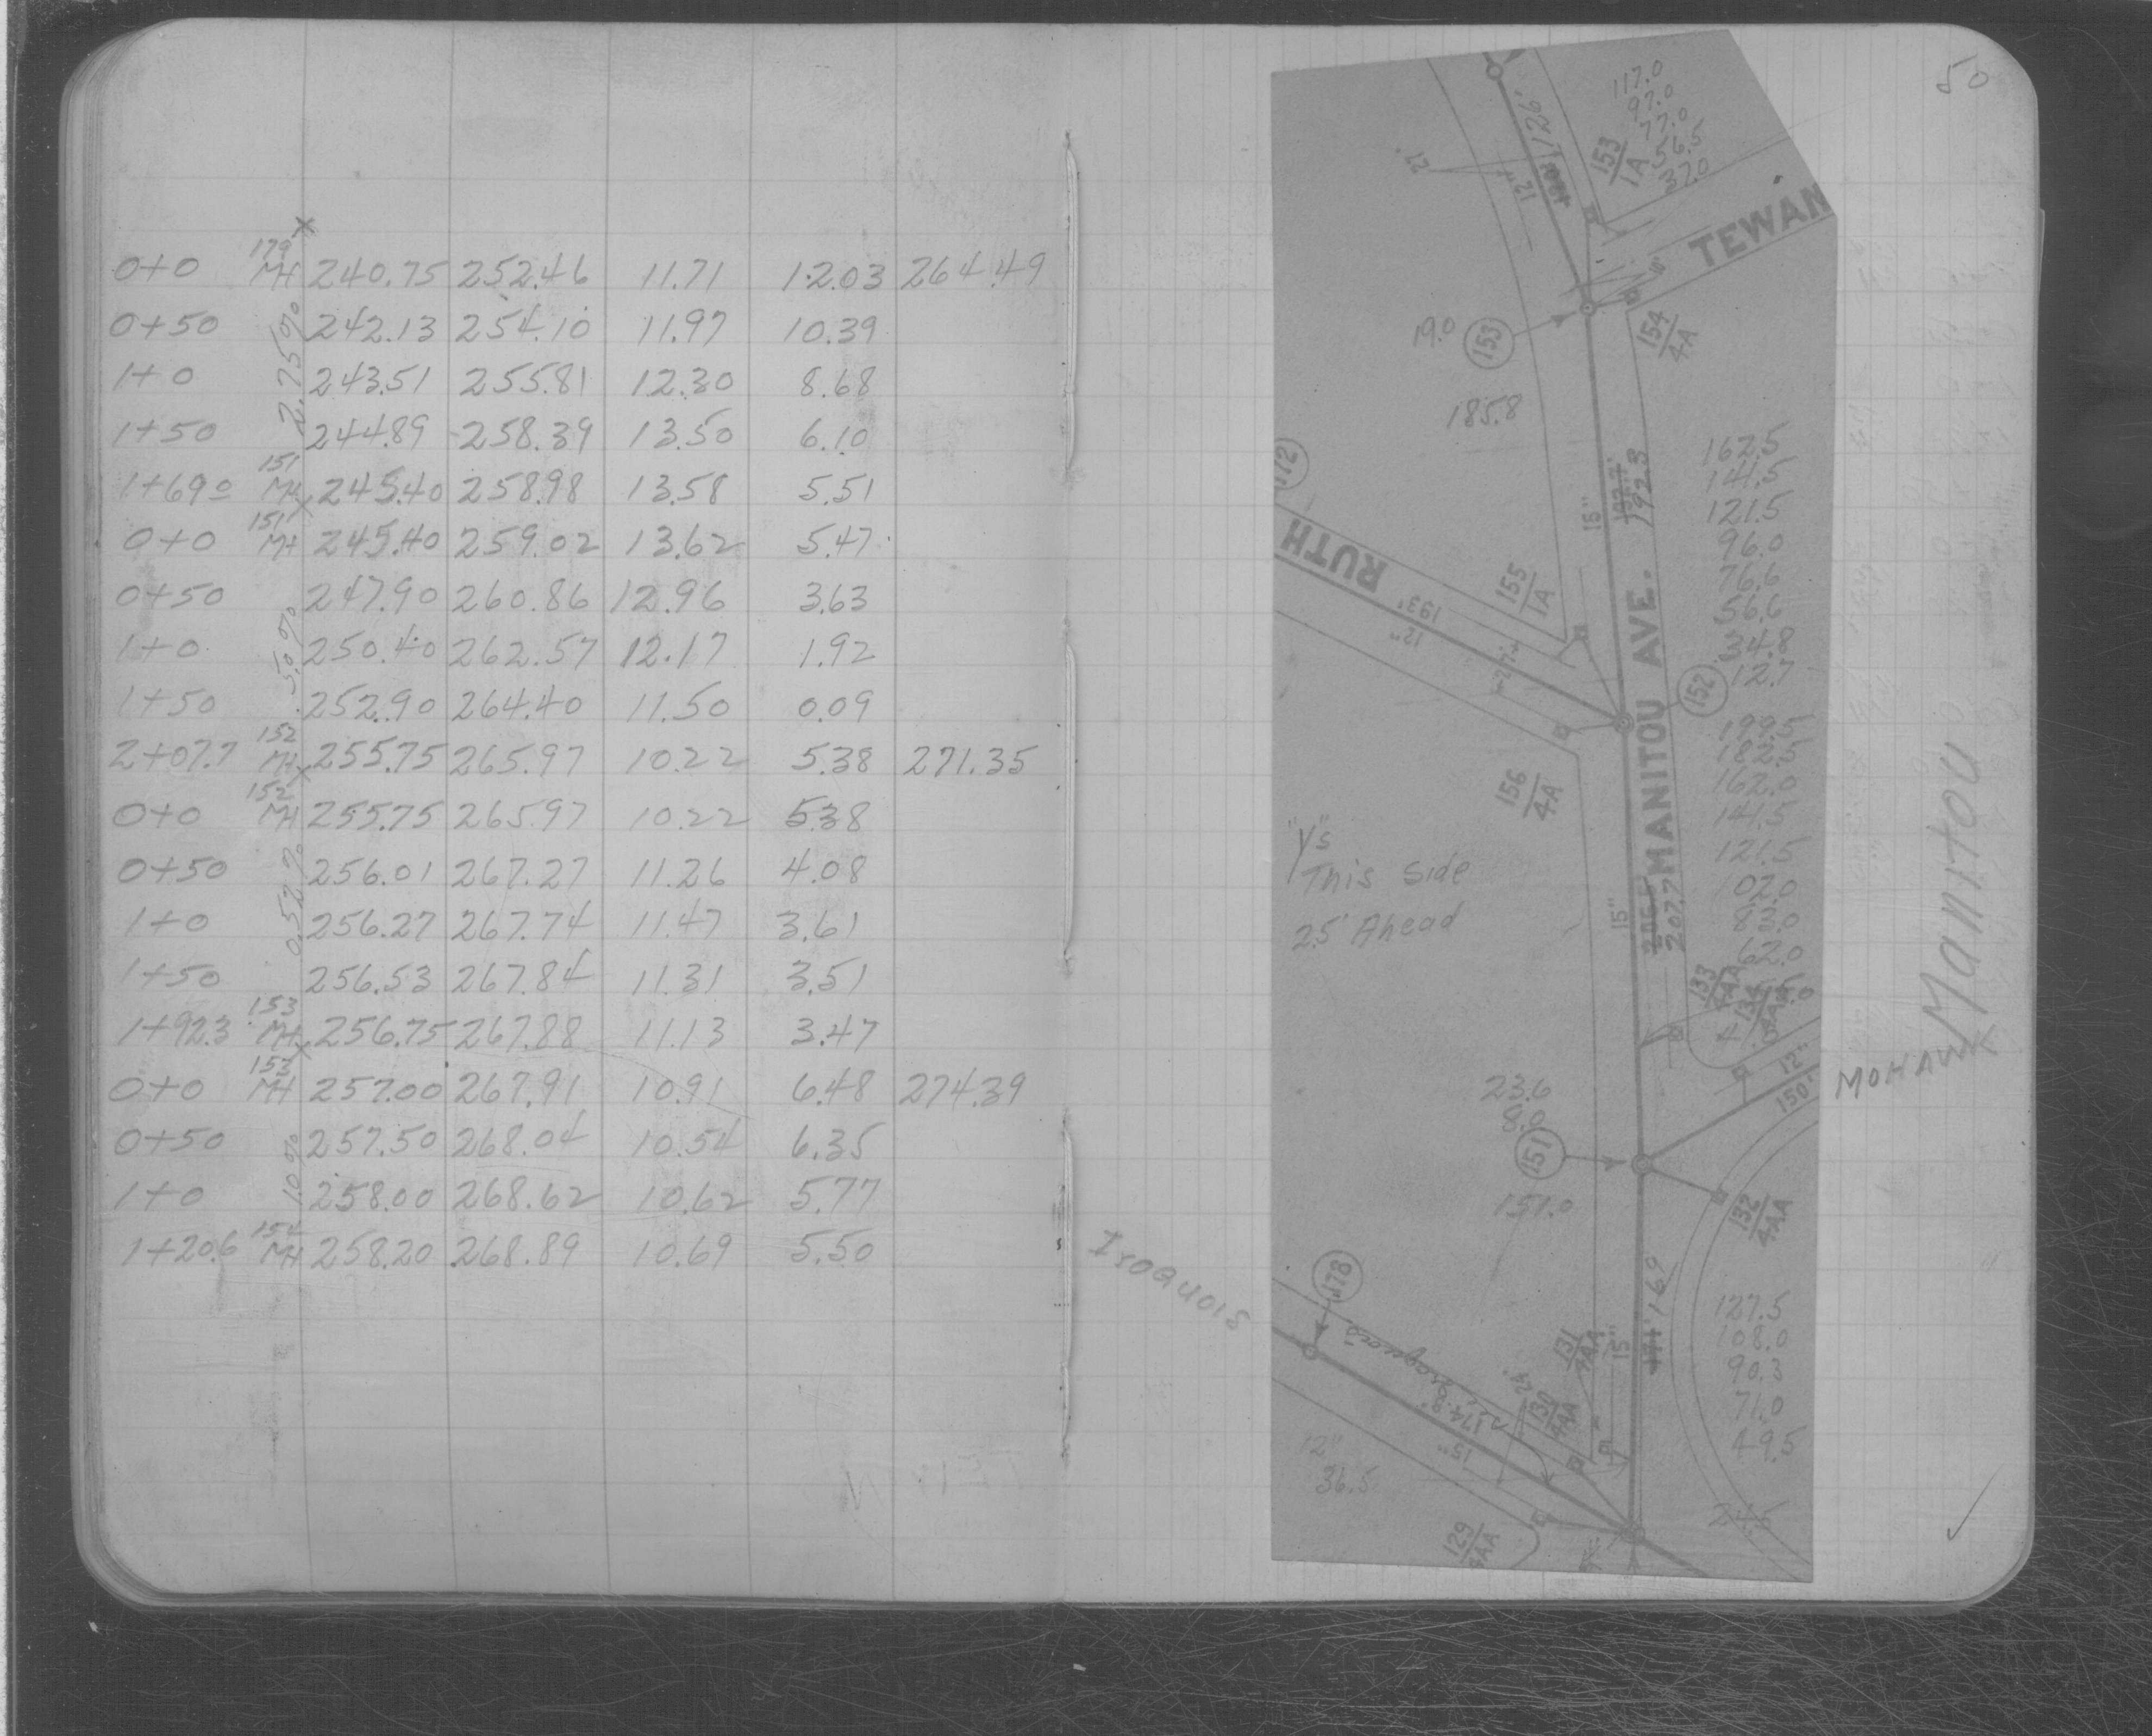 50
179
0+0 MH 240.75 252.46 11.71 12.03 264.49
0+50 242.13 254.10 11.97 10.39
2.75%
1+0 243.51 255.81 12.30 8.68
1+50 244.89 258.39 13.50 6.10
151
1+69.0 MH 245.40 258.98 13.58 5.51
151
0+0 MH 245.40 259.02 13.62 5.47
0+50 247.90 260.86 12.96 3.63
5.0%
1+0 250.40 262.57 12.17 1.92
1+50 252.90 264.40 11.50 0.09
152
2+07.7 MH 255.75 265.97 10.22 5.38 271.35
152
0+0 MH 255.75 265.97 10.22 5.38
0+50 256.01 267.27 11.26 4.08
0.52%
1+0 256.27 267.74 11.47 3.61
1+50 256.53 267.84 11.31 3.51
153
1+92.3 MH 256.75 267.88 11.13 3.47
153
0+0 MH 257.00 267.91 10.91 6.48 274.39
0+50 257.50 268.04 10.54 6.35
1.0%
1+0 258.00 268.62 10.62 5.77
154
1+20.6 MH 258.20 268.89 10.69 5.50
117.0
97.0
77.0
56.5
37.0
126'
12"
153
1A
TEWAN
19.0
153
154
4A
185.8
172
162.5
141.5
121.5
96.0
76.6
56.6
34.8
12.7
15"
192.3
RUTH
193'
12"
155
1A
152
156
4A
MANITOU AVE.
199.5
182.5
162.0
141.5
121.5
102.0
83.0
62.0
"Y"s
This side
25' Ahead
15"
207.7
133
4AA
12"
150'
MOHAWK
Manitou
23.6
8.0
151
151.0
132
4AA
169
15"
127.5
108.0
90.3
71.0
49.5
24.5
Iroquois
178
174.8'
15"
131
4AA
130
4AA
12"
36.5
129